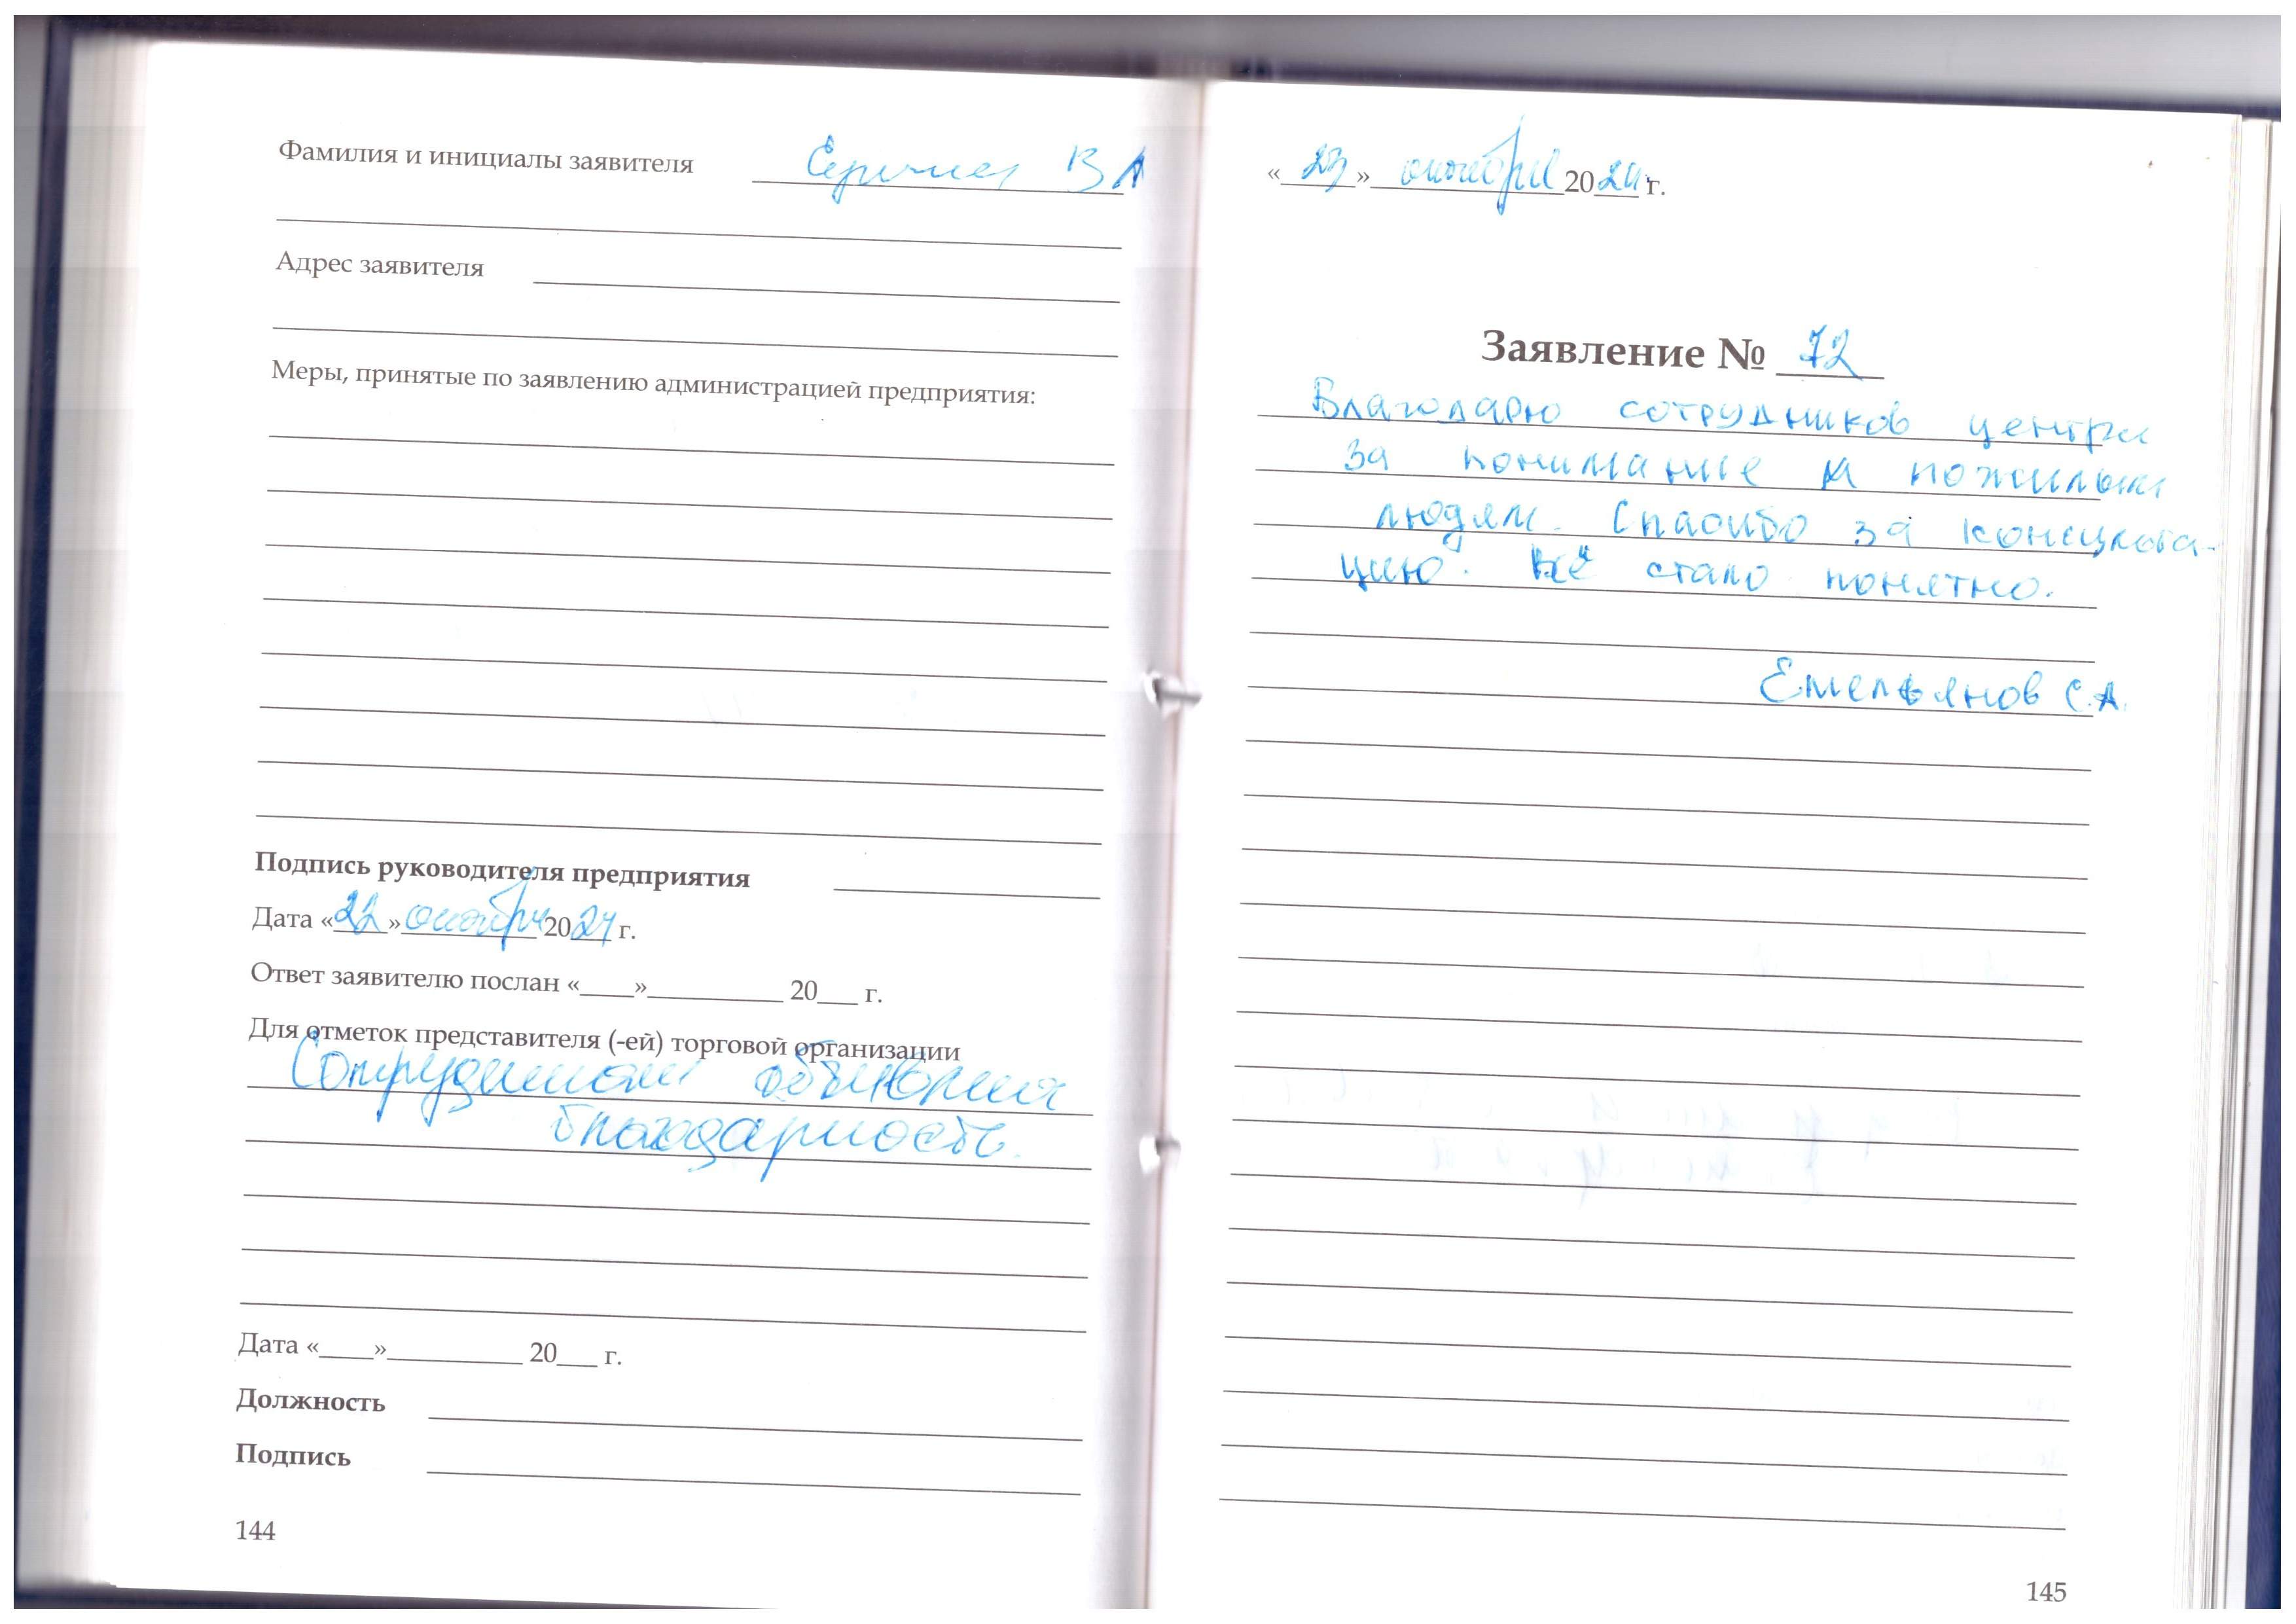 Фамилия и инициалы заявителя В А
Адрес заявителя
Меры, принятые по заявлению администрацией предприятия:
Подпись руководителя предприятия
Дата «22» октября 2024 г.
Ответ заявителю послан «____»__________ 20___ г.
Для отметок представителя (-ей) торговой организации
Сотрудникам объявлена
благодарность.
Дата «____»__________ 20___ г.
Должность
Подпись
144
«23» октября 2024 г.
Заявление № 72
Благодарю сотрудников центра
за понимание к пожилым
людям. Спасибо за
цию. Всё стало понятно.
Емельянов С.А.
145